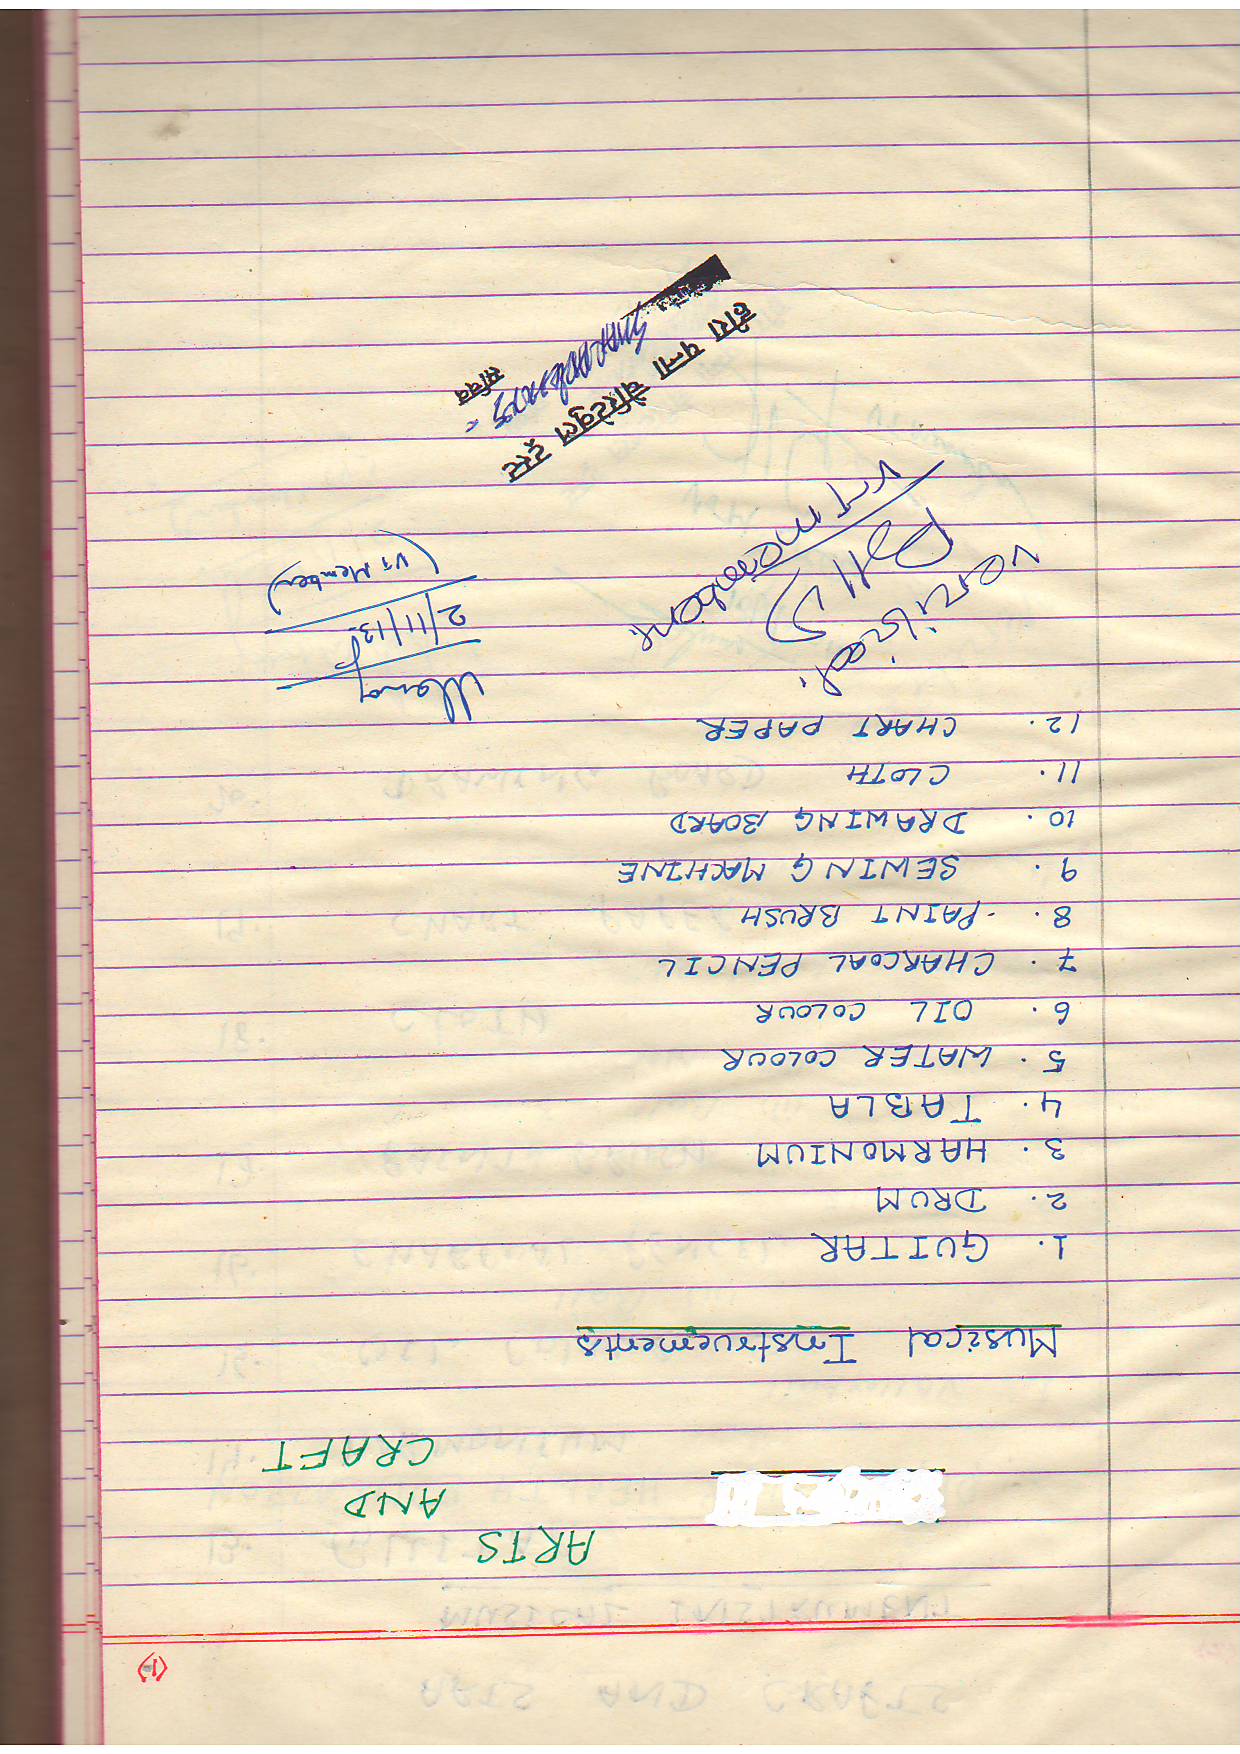 (1)
ARTS
AND
CRAFT
Musical Instruements
1. GUITAR
2. DRUM
3. HARMONIUM
4. TABLA
5. WATER COLOUR
6. OIL COLOUR
7. CHARCOAL PENCIL
8. PAINT BRUSH
9. SEWING MACHINE
10. DRAWING BOARD
11. CLOTH
12. CHART PAPER
2/11/13
(VT Member)
VT member
हीरा पन्ना चैरिटेबुल ट्रस्ट